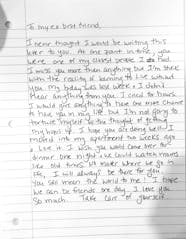 To my ex best friend,
I never thought I would be writing this
letter to you. At one point in time, you
were one of my closest people I had
I miss you more than anything but I'm stuck
with the reality of learning to live without
you. My birthday was last week & I didn't
hear anything from you. I cried for hours.
I would give anything to have one more chance
to have you in my life but I'm not going to
torture myself by the thought of getting
my hopes up. I hope you are doing well. I
moved into my apartment two weeks ago
& I wish you would come over for
dinner one night & we could watch movies
like old times. No matter where we go in
life, I will always be there for you.
You still mean the world to me. I hope
we can be friends one day. I love you
so much. Take care of yourself.